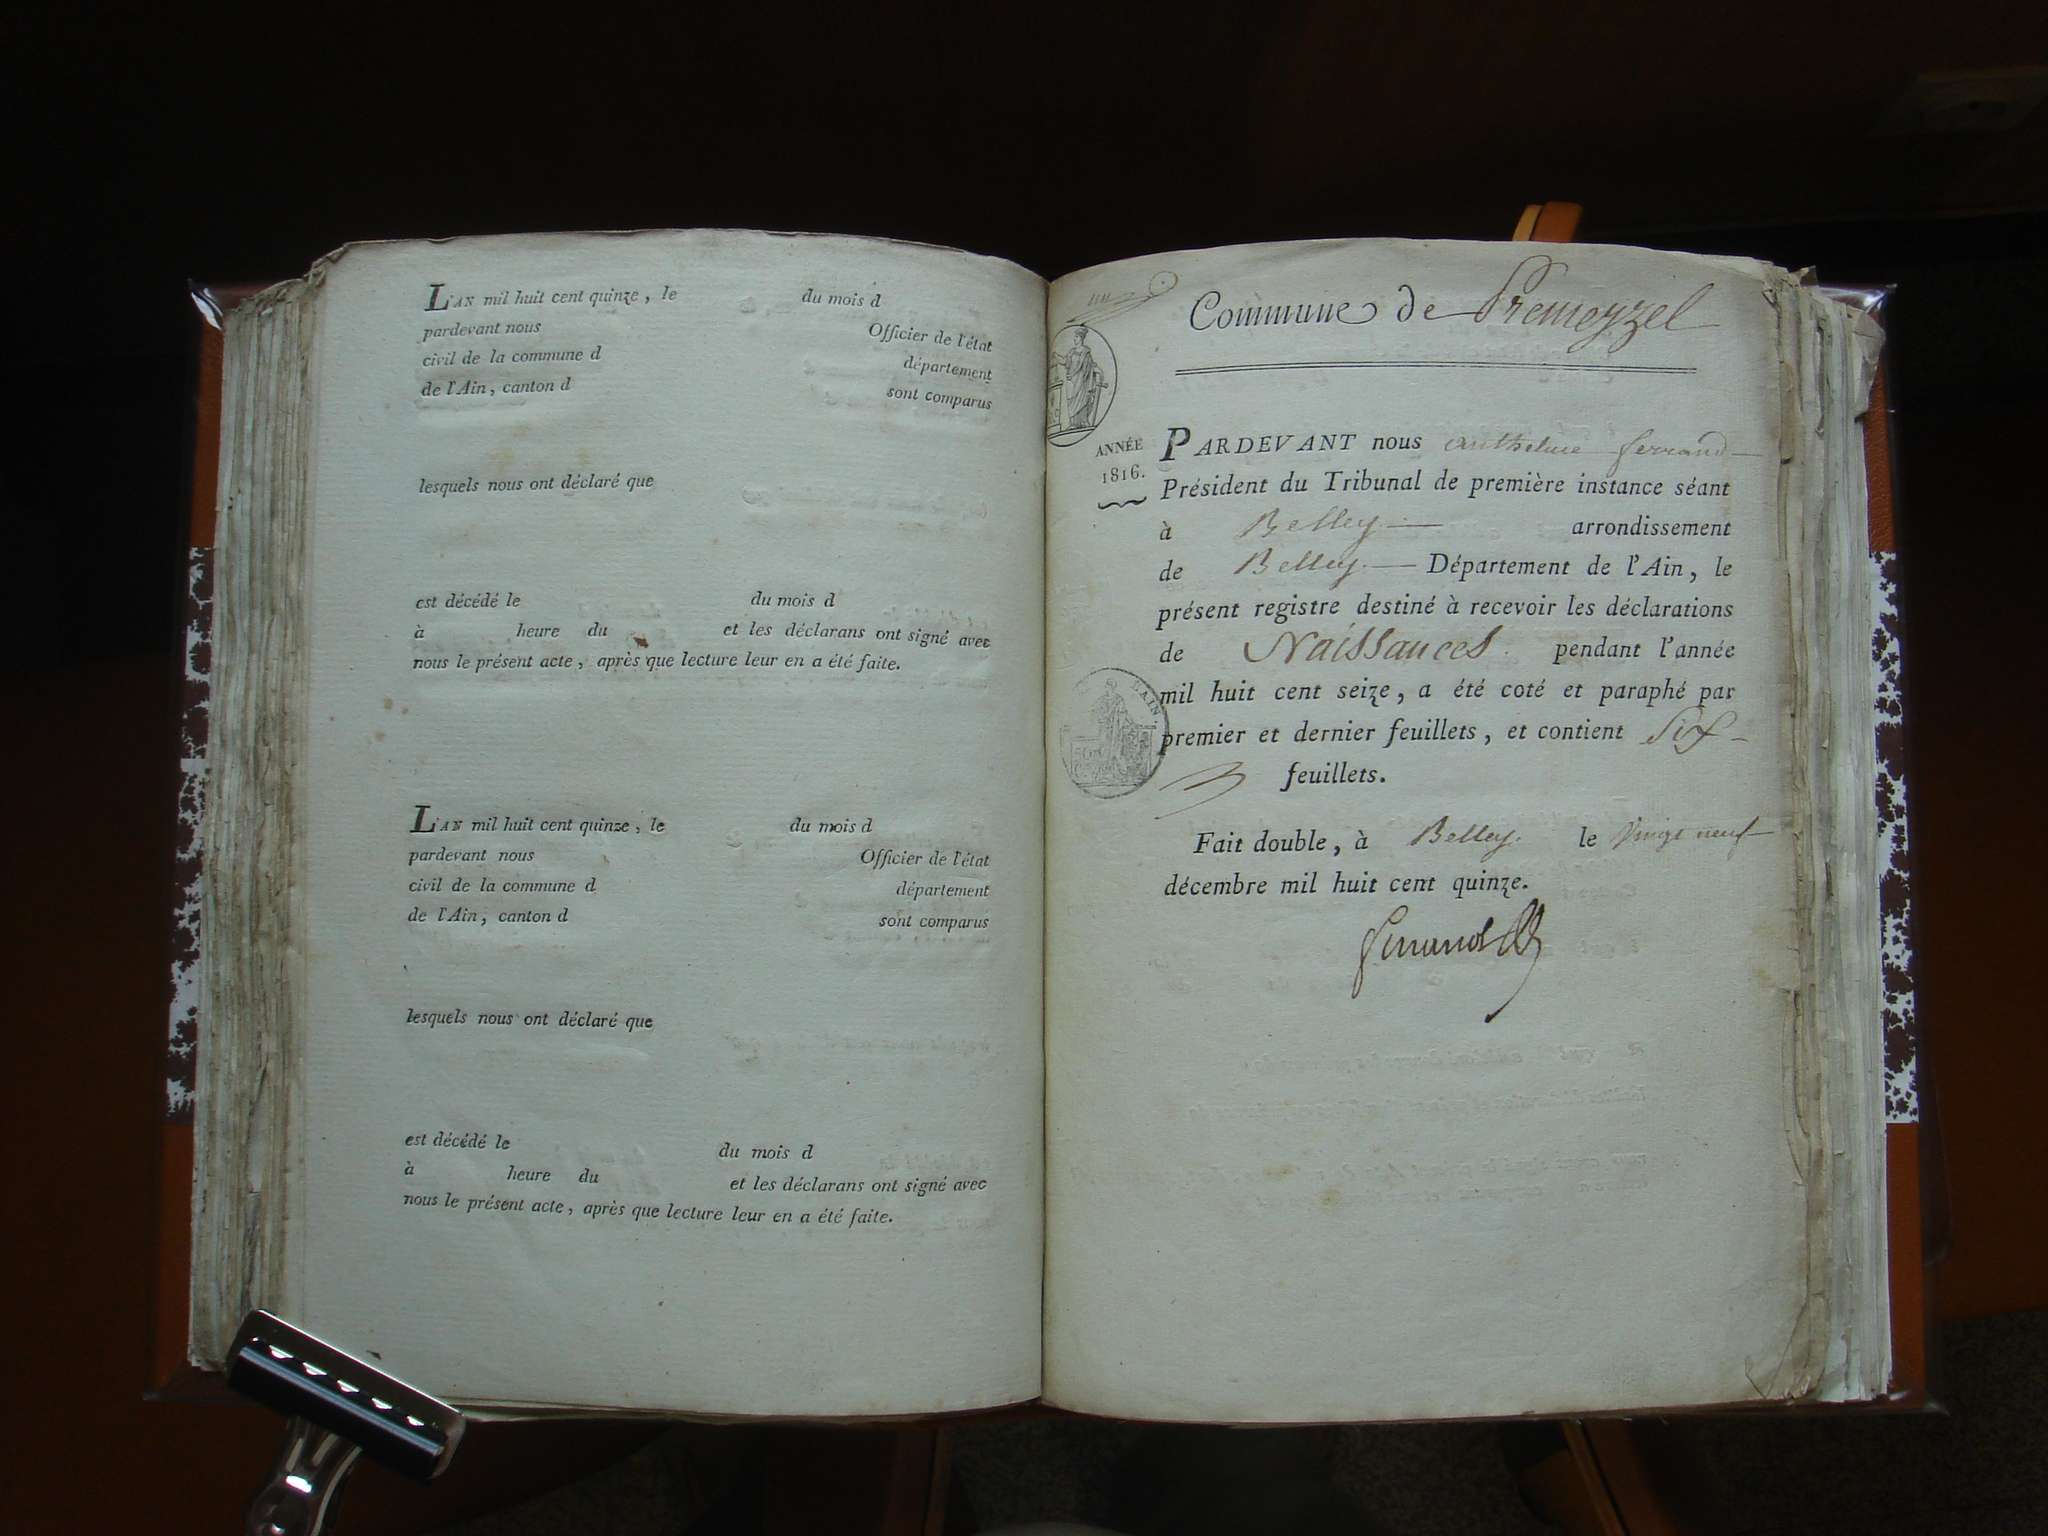 L'AN mil huit cent quinze, le du mois d
pardevant nous Officier de l'état
civil de la commune d département
de l'Ain, canton d sont comparus
lesquels nous ont déclaré que
est décédé le du mois d
à heure du et les déclarans ont signé avec
nous le présent acte, après que lecture leur en a été faite.
L'AN mil huit cent quinze, le du mois d
pardevant nous Officier de l'état
civil de la commune d département
de l'Ain, canton d sont comparus
lesquels nous ont déclaré que
est décédé le du mois d
à heure du et les déclarans ont signé avec
nous le présent acte, après que lecture leur en a été faite.
Commune de Premeyzel
ANNÉE
1816.
PARDEVANT nous anthelme ferrand
Président du Tribunal de première instance séant
à Belley arrondissement
de Belley Département de l'Ain, le
présent registre destiné à recevoir les déclarations
de Naissances pendant l'année
mil huit cent seize, a été coté et paraphé par
premier et dernier feuillets, et contient six
feuillets.
AIN.
Fait double, à Belley. le vingt neuf
décembre mil huit cent quinze.
ferrand